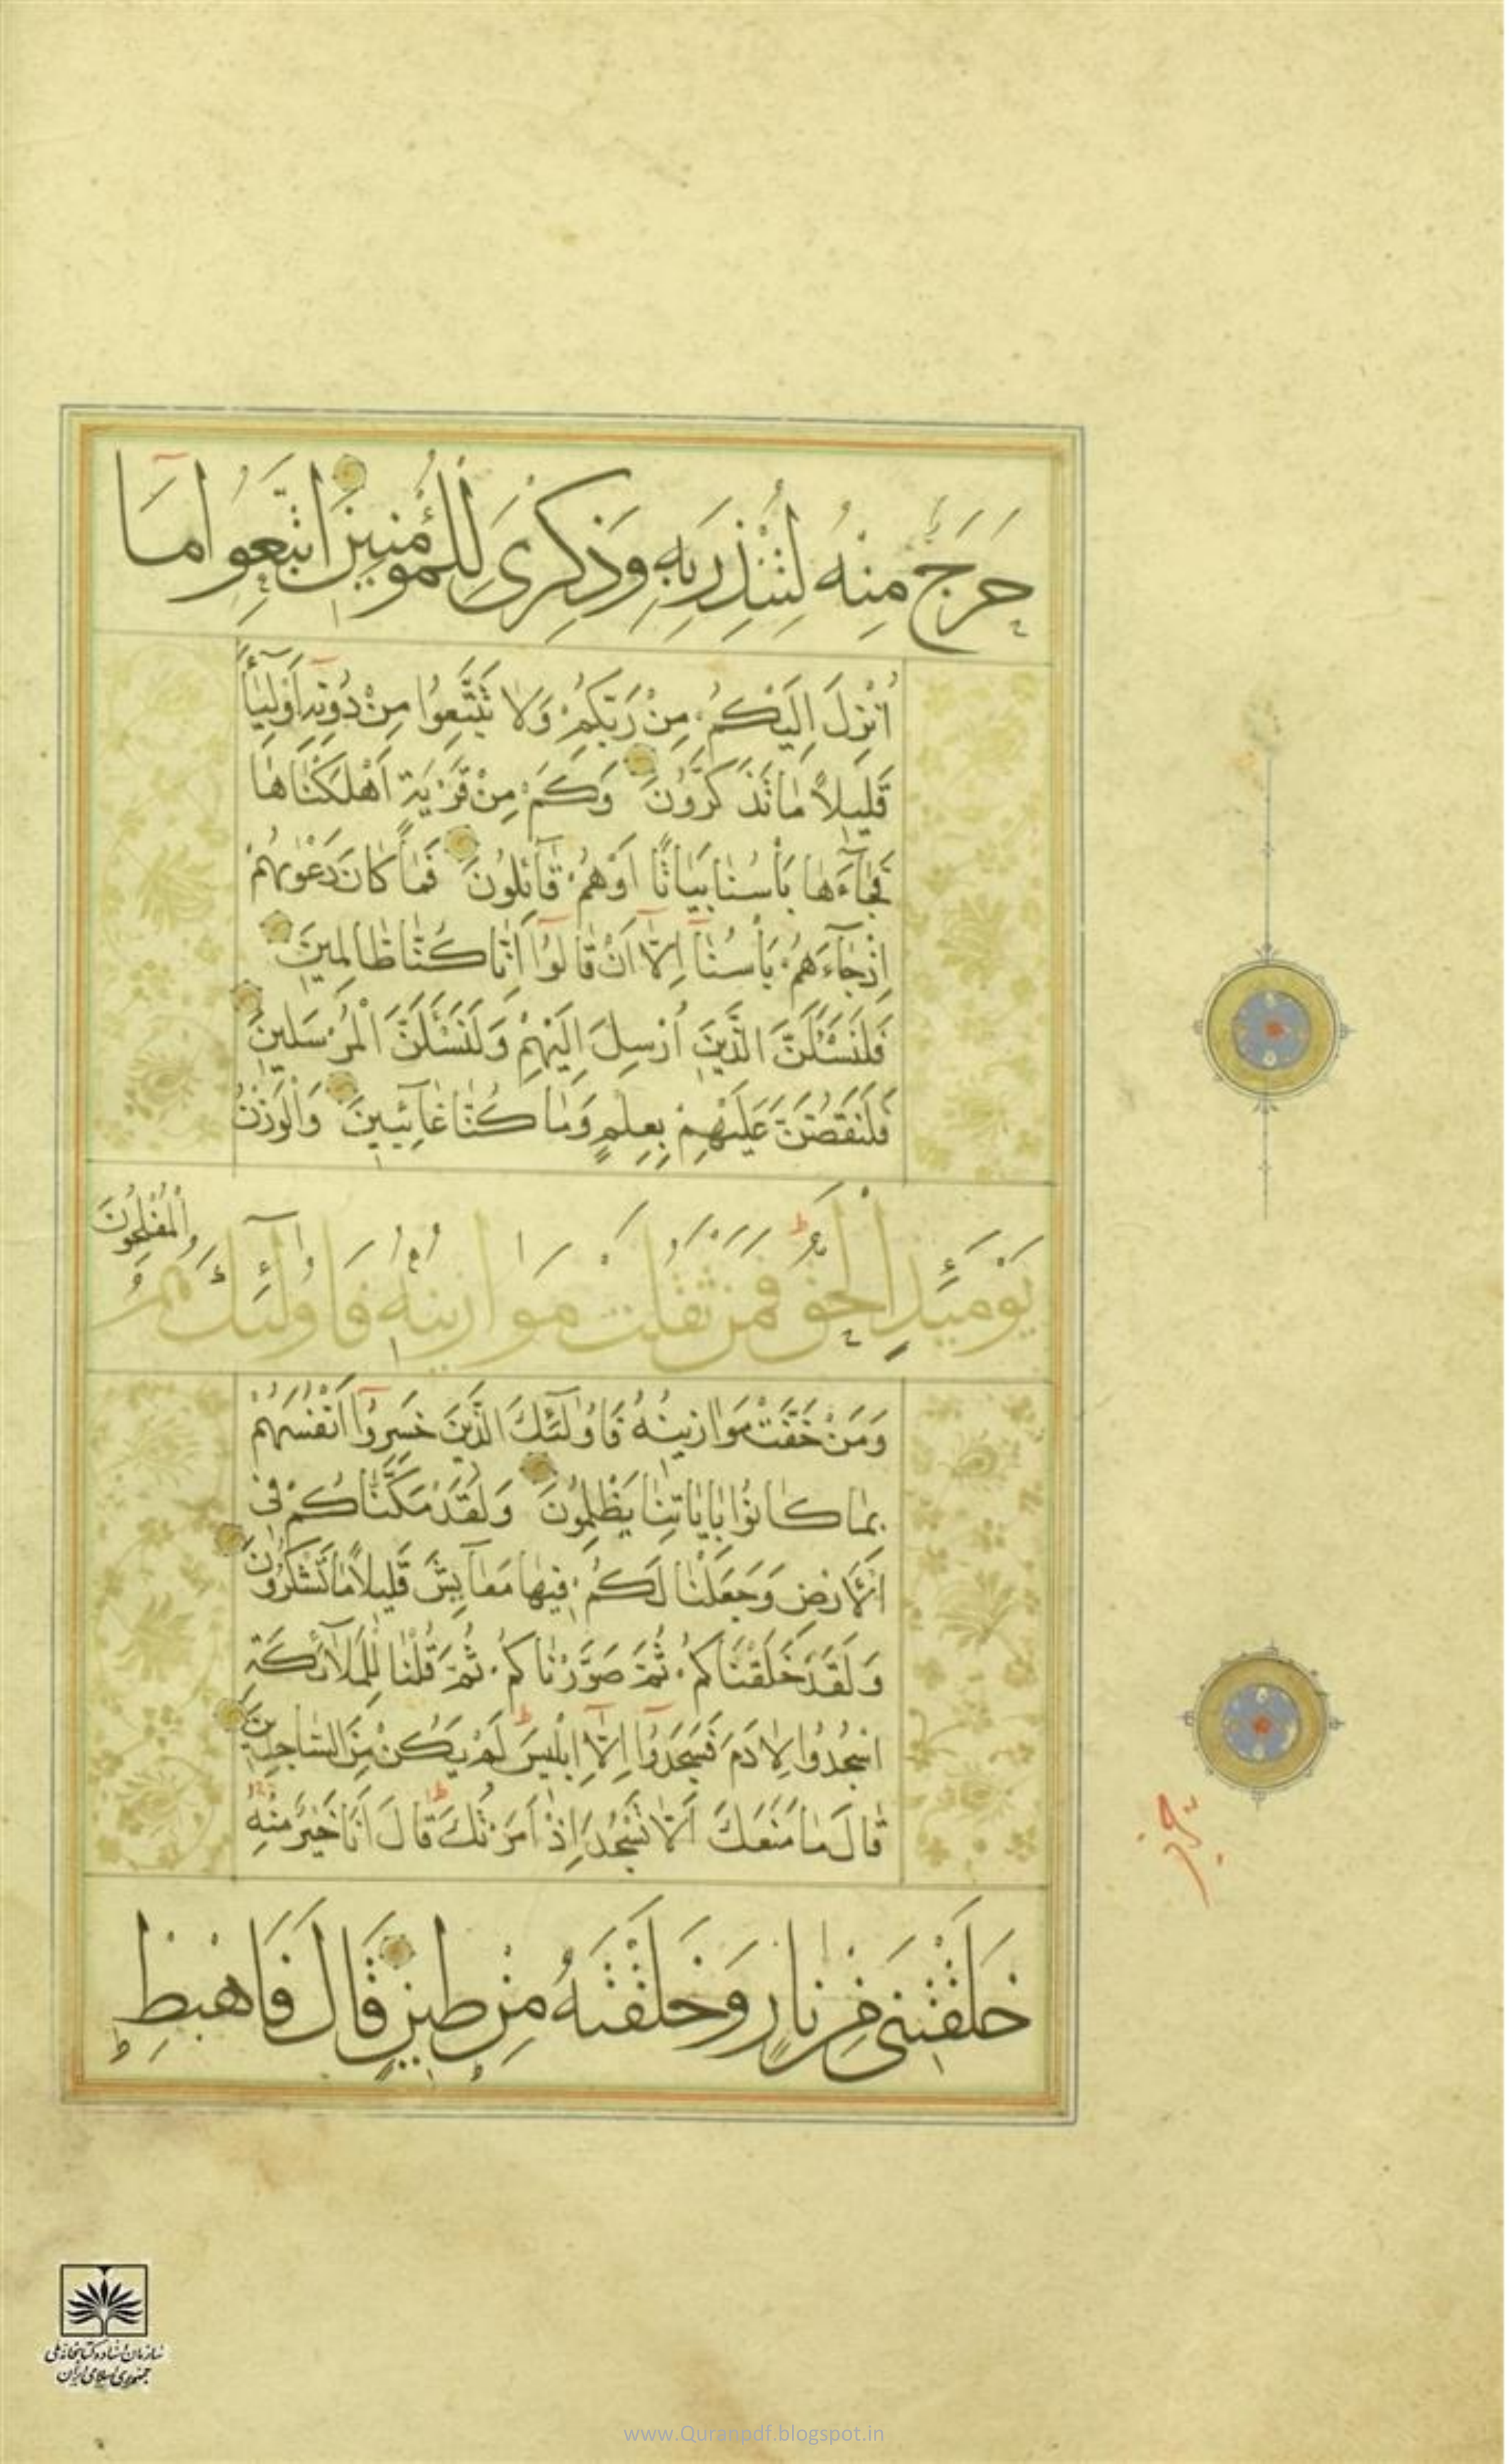 حَرَجٌ مِنْهُ لِتُنْذِرَ بِهِ وَذِكْرَى لِلْمُؤْمِنِينَ اتَّبِعُوا مَا
أُنْزِلَ إِلَيْكُمْ مِنْ رَبِّكُمْ وَلَا تَتَّبِعُوا مِنْ دُونِهِ أَوْلِيَاءَ
قَلِيلًا مَا تَذَكَّرُونَ وَكَمْ مِنْ قَرْيَةٍ أَهْلَكْنَاهَا
فَجَاءَهَا بَأْسُنَا بَيَاتًا أَوْ هُمْ قَائِلُونَ فَمَا كَانَ دَعْوٰيهُمْ
إِذْ جَاءَهُمْ بَأْسُنَا إِلَّا أَنْ قَالُوا إِنَّا كُنَّا ظَالِمِينَ
فَلَنَسْئَلَنَّ الَّذِينَ أُرْسِلَ إِلَيْهِمْ وَلَنَسْئَلَنَّ الْمُرْسَلِينَ
فَلَنَقُصَّنَّ عَلَيْهِمْ بِعِلْمٍ وَمَا كُنَّا غَائِبِينَ وَالْوَزْنُ
يَوْمَئِذٍ الْحَقُّ فَمَنْ ثَقُلَتْ مَوَازِينُهُ فَأُولَئِكَ هُمُ الْمُفْلِحُونَ
وَمَنْ خَفَّتْ مَوَازِينُهُ فَأُولَئِكَ الَّذِينَ خَسِرُوا أَنْفُسَهُمْ
بِمَا كَانُوا بِآيَاتِنَا يَظْلِمُونَ وَلَقَدْ مَكَّنَّاكُمْ فِي
الْأَرْضِ وَجَعَلْنَا لَكُمْ فِيهَا مَعَايِشَ قَلِيلًا مَا تَشْكُرُونَ
وَلَقَدْ خَلَقْنَاكُمْ ثُمَّ صَوَّرْنَاكُمْ ثُمَّ قُلْنَا لِلْمَلَائِكَةِ
اسْجُدُوا لِآدَمَ فَسَجَدُوا إِلَّا إِبْلِيسَ لَمْ يَكُنْ مِنَ السَّاجِدِينَ
قَالَ مَا مَنَعَكَ أَلَّا تَسْجُدَ إِذْ أَمَرْتُكَ قَالَ أَنَا خَيْرٌ مِنْهُ
خَلَقْتَنِي مِنْ نَارٍ وَخَلَقْتَهُ مِنْ طِينٍ قَالَ فَاهْبِطْ
سازمان اسناد و کتابخانه ملی
جمهوری اسلامی ایران
www.Quranpdf.blogspot.in